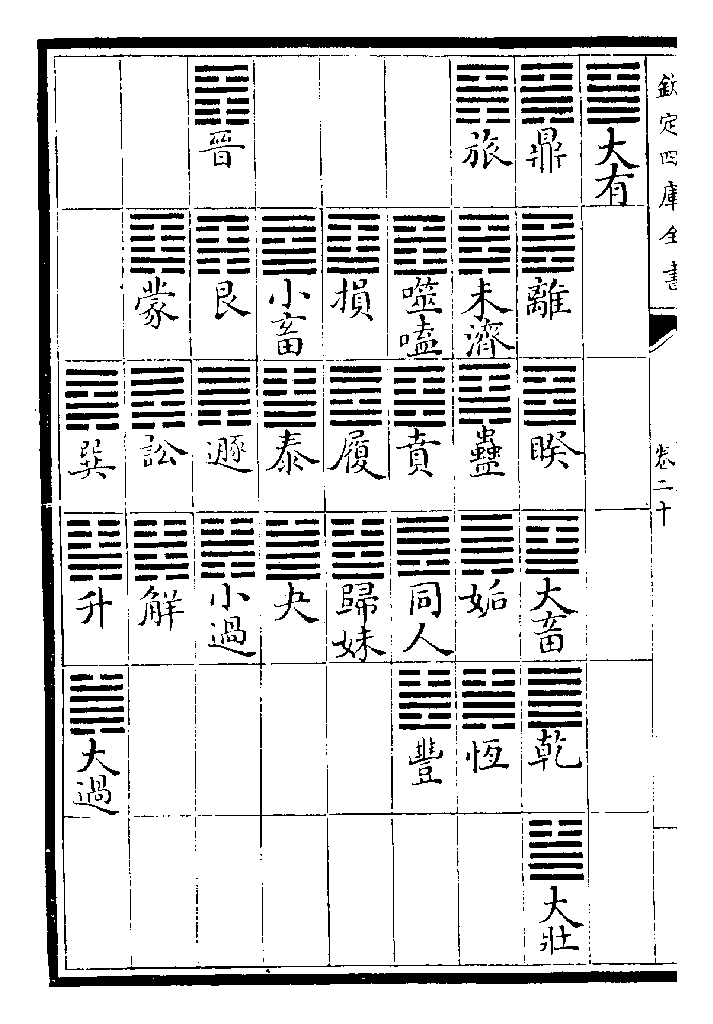 欽定四庫全書
卷二十
大有
鼎
離
睽
大畜
乾
大壯
旅
未濟
蠱
姤
恆
噬嗑
賁
同人
豐
損
履
歸妹
小畜
泰
夬
晉
艮
遯
小過
蒙
訟
解
巽
升
大過